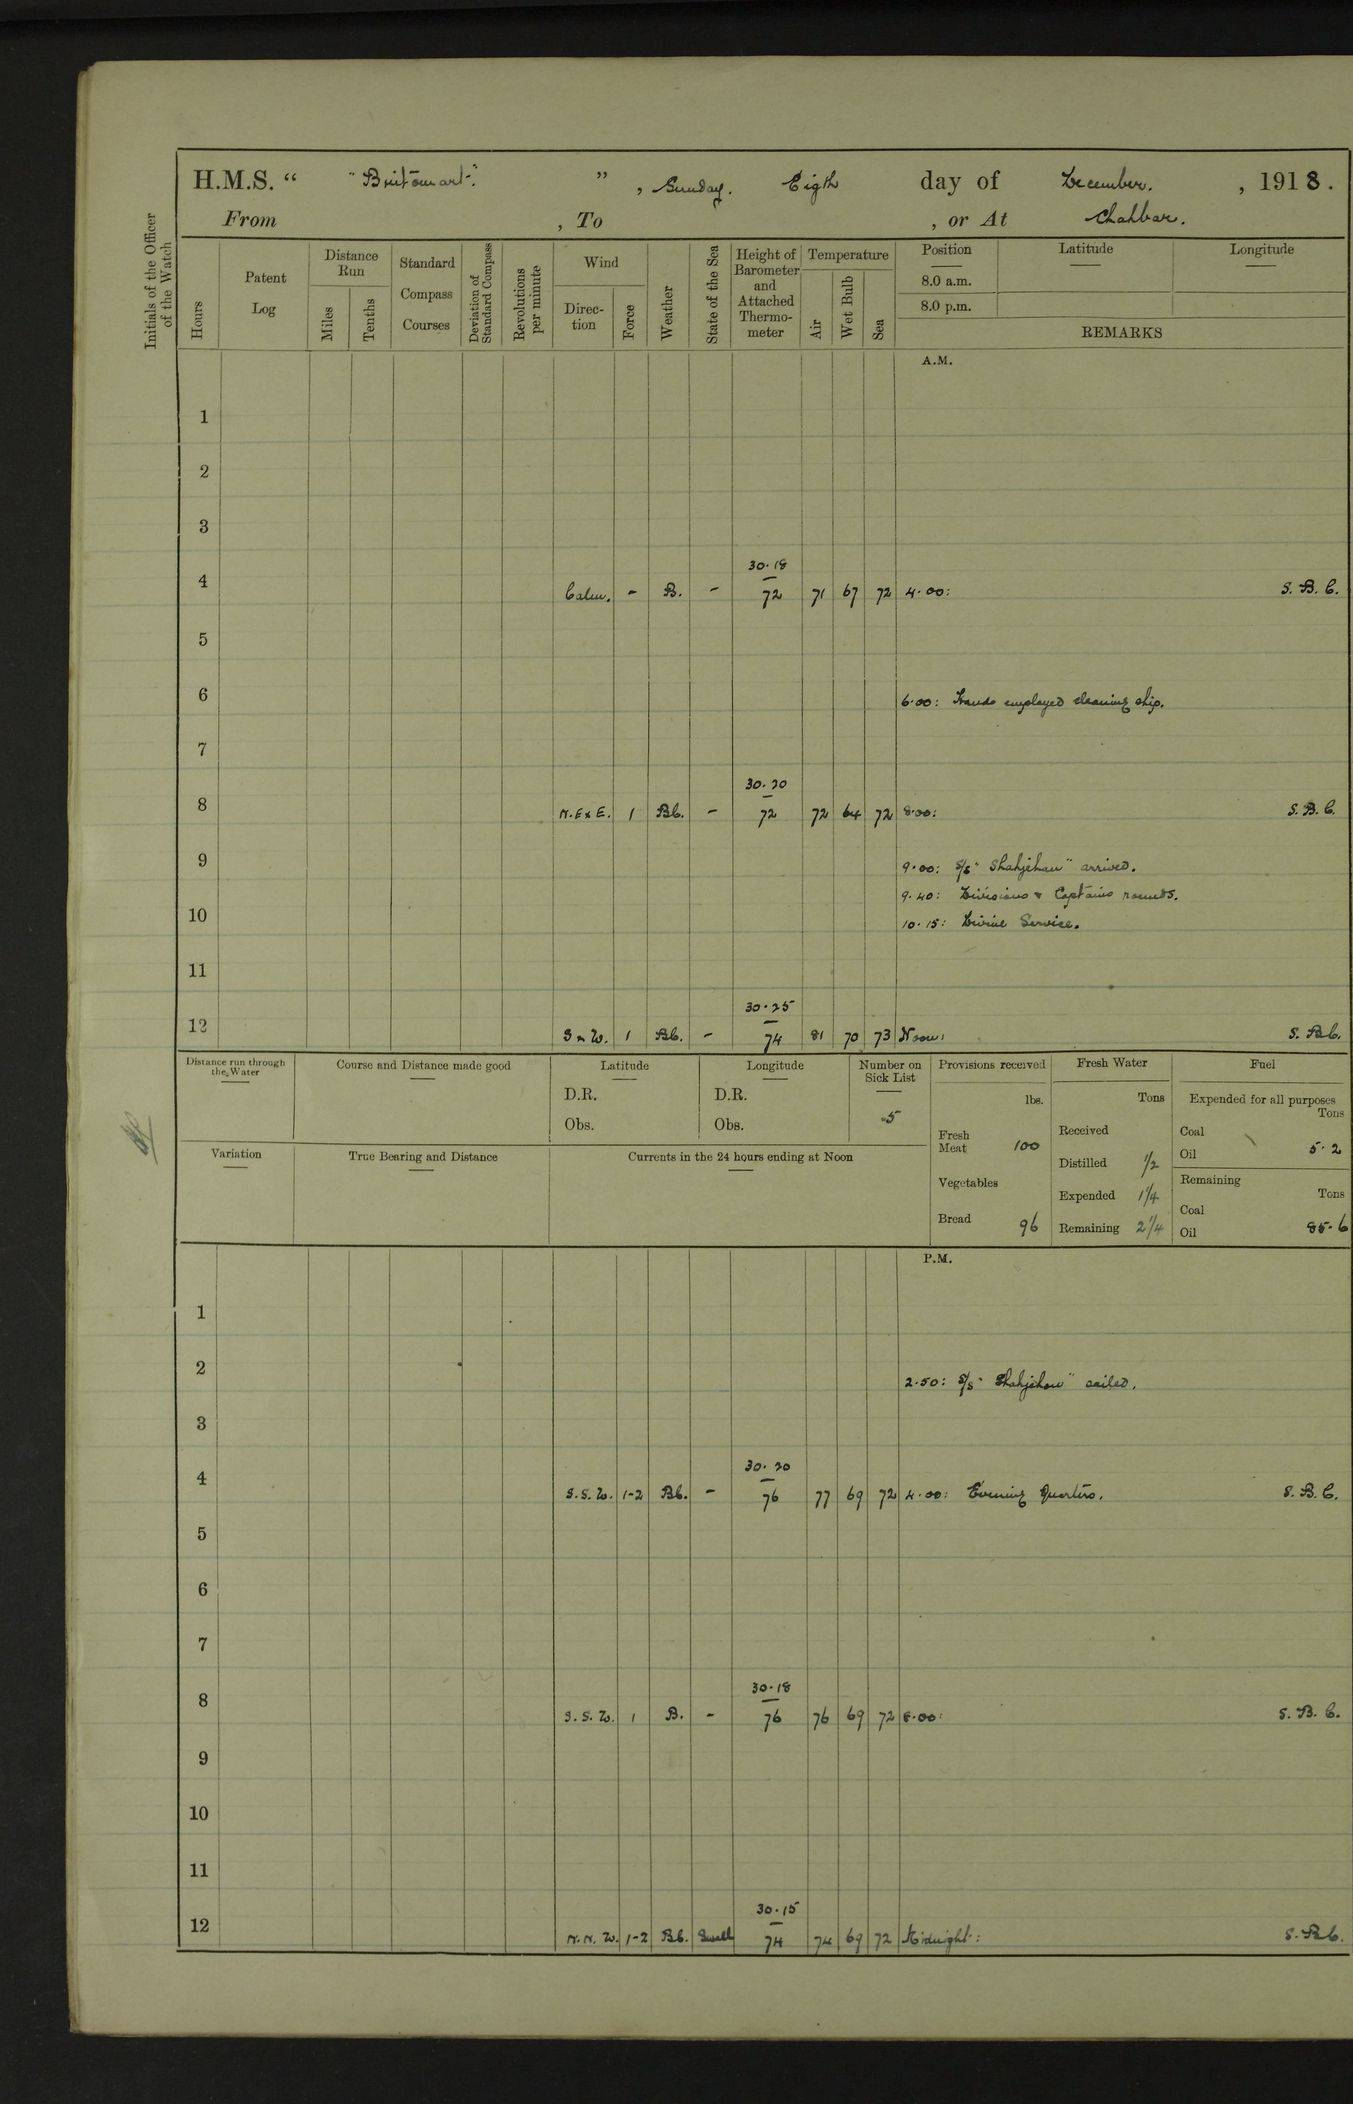 H.M.S. “ "Britomart." ” , Sunday. Eigth day of December. , 1918.
From , To , or At Chahbar.
Initials of the Officer of the Watch
Hours
Patent Log
Distance Run
Miles
Tenths
Standard Compass Courses
Deviation of Standard Compass
Revolutions per minute
Wind
Direction
Force
Weather
State of the Sea
Height of Barometer and Attached Thermometer
Temperature
Air
Wet Bulb
Sea
Position Latitude Longitude
8.0 a.m.
8.0 p.m.
REMARKS
A.M.
1
2
3
30.18
4 Calm. - B. - 72 71 67 72 4.00: S. B. C.
5
6 6.00: Hands employed cleaning ship.
7
30.20
8 N.E x E. 1 Bc. - 72 72 64 72 8.00: S. B. C.
9 9.00: S/S "Shahjehan" arrived.
9.40: Divisions & Captains rounds.
10 10.15: Divine Service.
11
30.25
12 S x W. 1 Bc. - 74 81 70 73 Noon: S. B. C.
Distance run through the Water
Course and Distance made good
Latitude
D.R.
Obs.
Longitude
D.R.
Obs.
Number on Sick List
5
Variation
True Bearing and Distance
Currents in the 24 hours ending at Noon
Provisions received
lbs.
Fresh Meat 100
Vegetables
Bread 96
Fresh Water
Tons
Received
Distilled 1/2
Expended 1 1/4
Remaining 2 1/4
Fuel
Expended for all purposes
Tons
Coal
Oil 5.2
Remaining
Tons
Coal
Oil 85.6
P.M.
1
2 2.50: S/S "Shahjehan" sailed.
3
30.20
4 S.S.W. 1-2 Bc. - 76 77 69 72 4.00: Evening Quarters. S. B. C.
5
6
7
30.18
8 S.S.W. 1 B. - 76 76 69 72 8.00: S. B. C.
9
10
11
30.15
12 N.N.W. 1-2 Bc. Swell 74 74 69 72 Midnight: S. B. C.